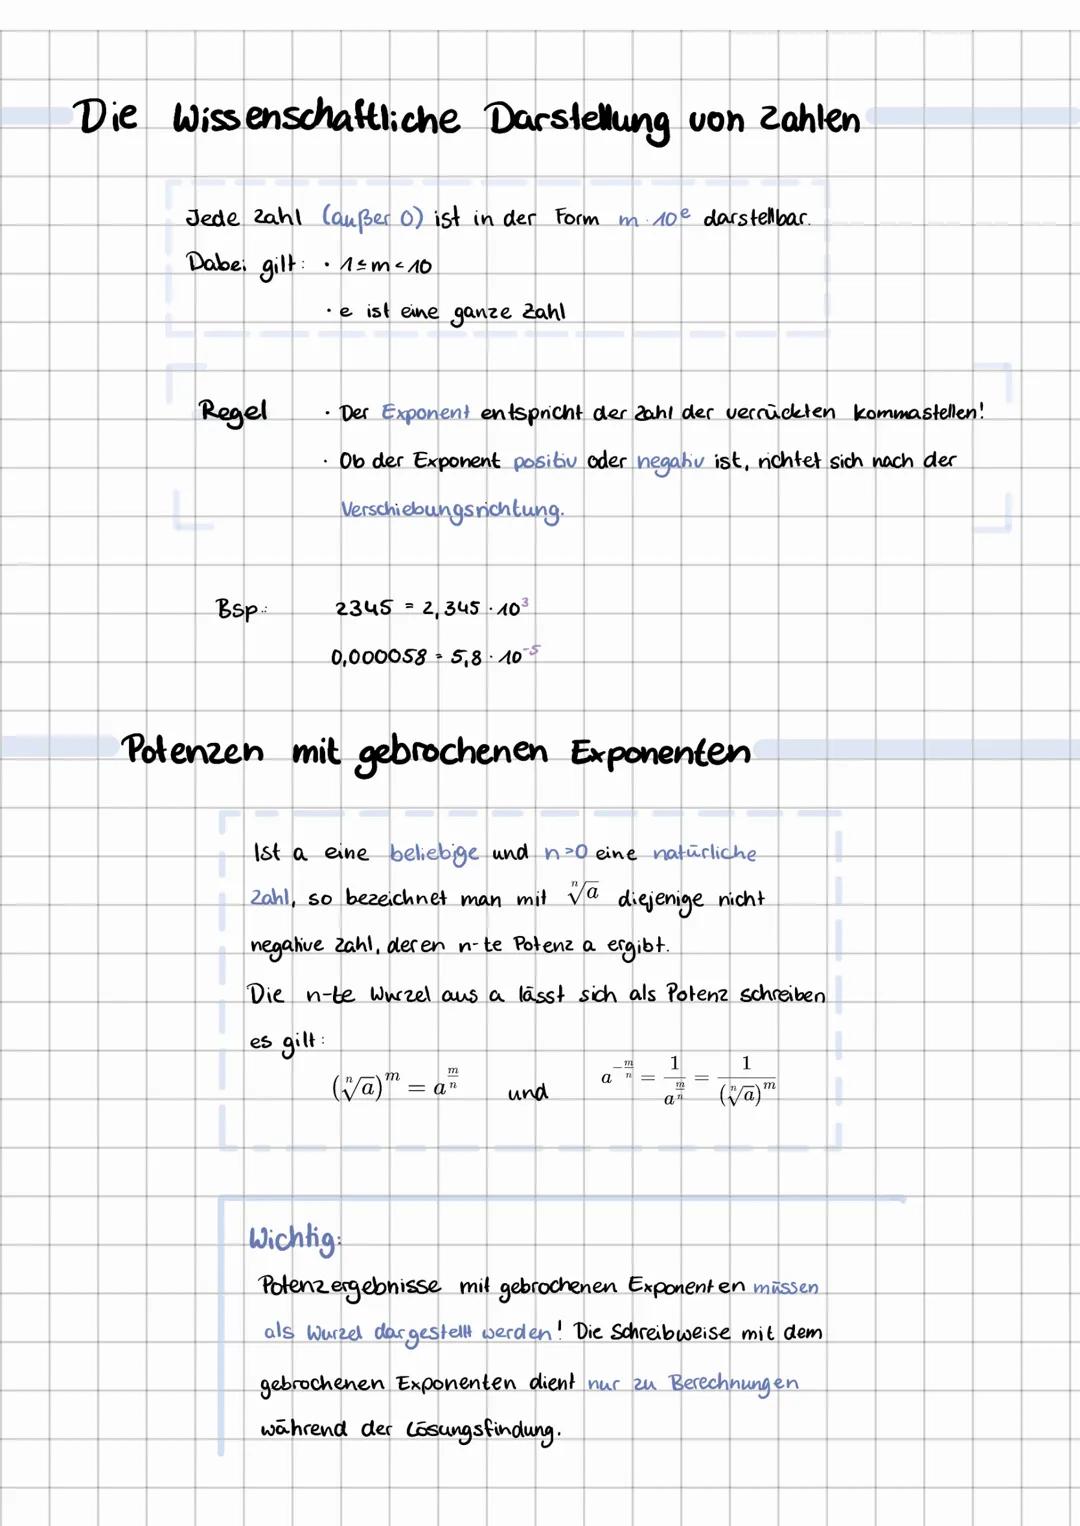 Die Wissenschaftliche Darstellung von Zahlen
Jede Zahl (außer 0) ist in der Form m · 10^e darstellbar.
Dabei gilt: · 1≤m<10
· e ist eine ganze Zahl
Regel · Der Exponent entspricht der Zahl der verrückten Kommastellen!
· Ob der Exponent positiv oder negativ ist, richtet sich nach der
Verschiebungsrichtung.
Bsp.: 2345 = 2,345 · 10^3
0,000058 = 5,8 · 10^-5
Potenzen mit gebrochenen Exponenten
Ist a eine beliebige und n>0 eine natürliche
Zahl, so bezeichnet man mit ⁿ√a diejenige nicht
negative Zahl, deren n-te Potenz a ergibt.
Die n-te Wurzel aus a lässt sich als Potenz schreiben
es gilt:
(ⁿ√a)^m = a^(m/n) und a^(-m/n) = 1/a^(m/n) = 1/(ⁿ√a)^m
Wichtig:
Potenzergebnisse mit gebrochenen Exponenten müssen
als Wurzel dargestellt werden! Die Schreibweise mit dem
gebrochenen Exponenten dient nur zu Berechnungen
während der Lösungsfindung.